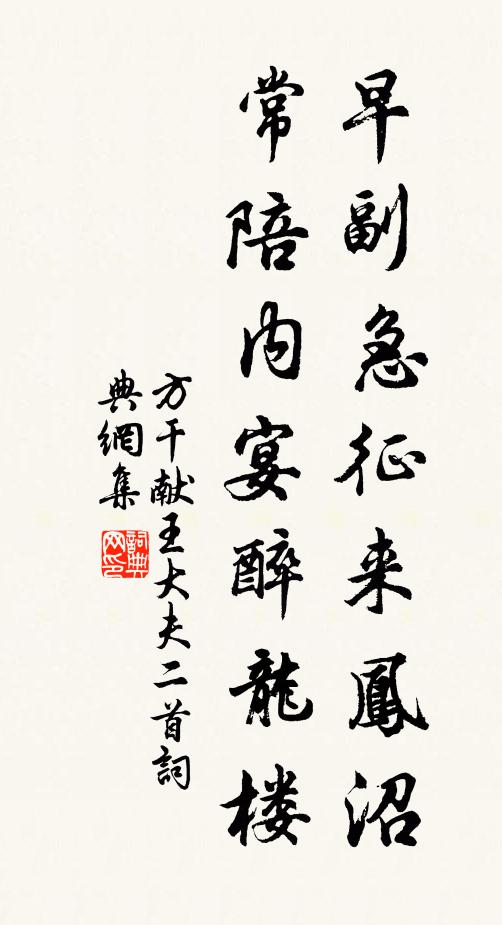 早副急征来鳳沼
常陪内宴醉龍楼
方干献王大夫二首詞
典網集
詞典
网印